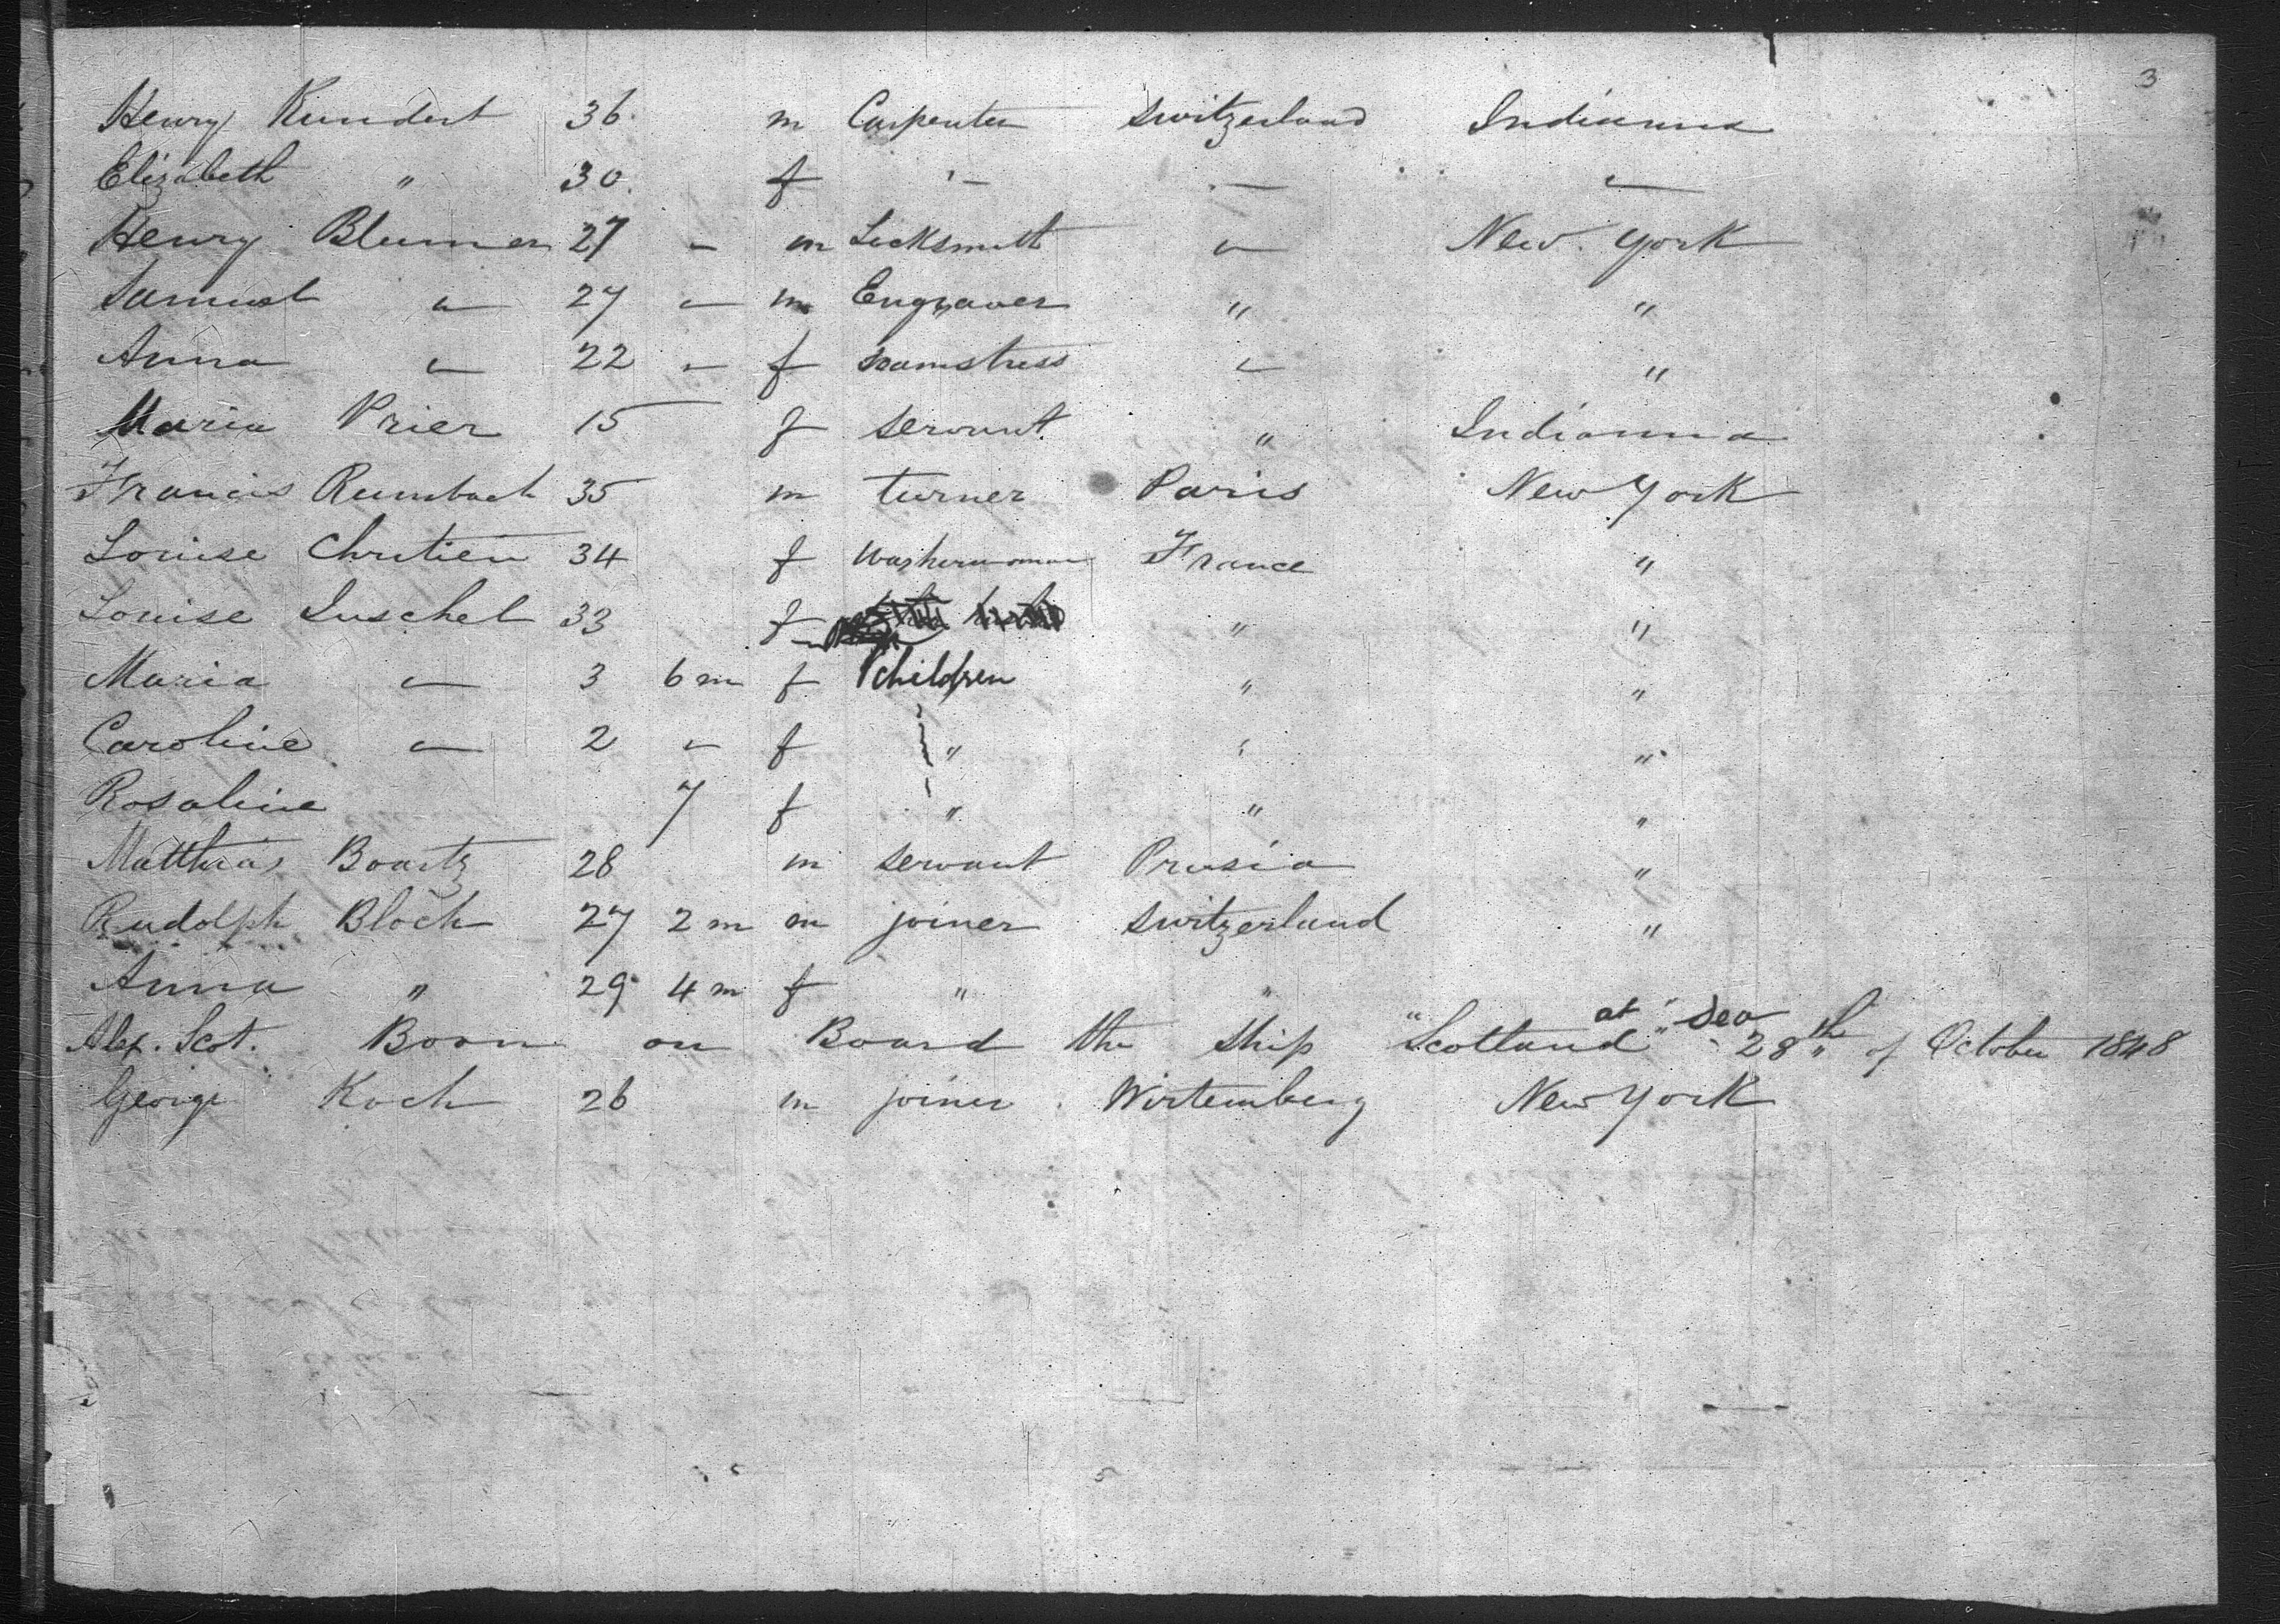 3
Henry Kundert 36 m Carpenter Switzerland Indianna
Elizabeth " 30 f " " "
Henry Blumer 27 " m Locksmith " New York
Samuel " 27 " m Engraver " "
Anna " 22 " f seamstress " "
Maria Prier 15 f servant " Indianna
Francis Rumbach 35 m turner Paris New York
Louise Chretien 34 f Washerwoman France "
Louise Luschel 33 f " "
Maria " 3 6 m f children " "
Caroline " 2 " f " " "
Rosaline 7 f " " "
Matthias Boartz 28 m servant Prusia "
Rudolph Bloch 27 2 m m joiner Switzerland "
Anna " 29 4 m f " "
Alex. Scot. Born on Board the Ship "Scotland" at Sea 28th of October 1848
George Koch 26 m joiner Wirtemberg New York